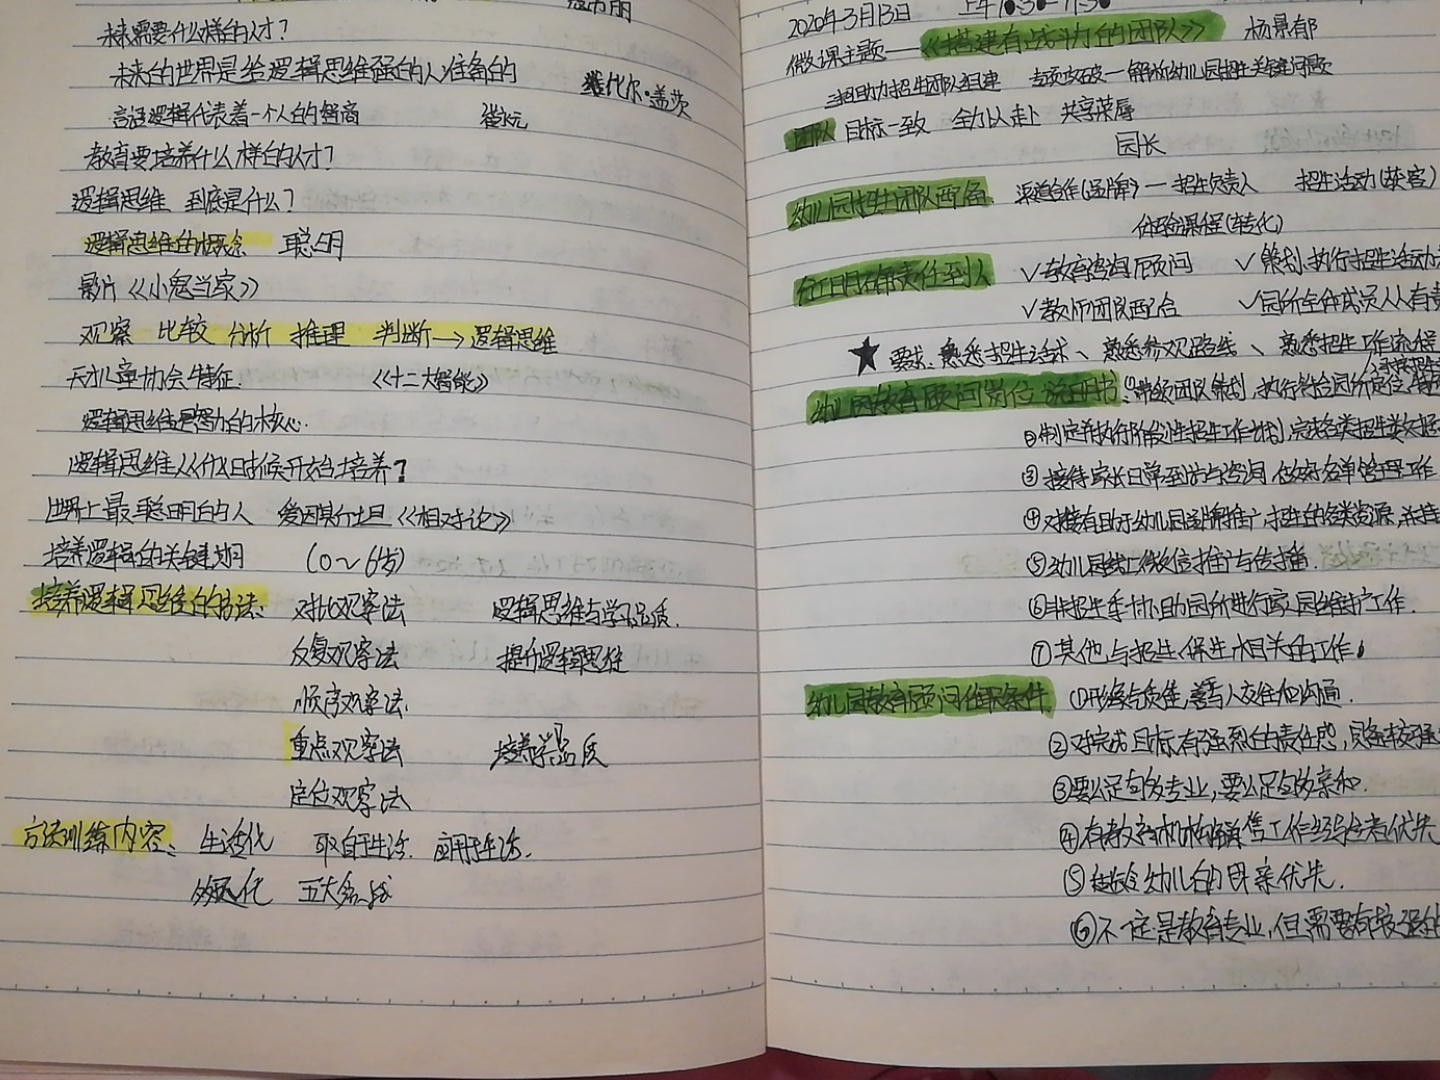 未来需要什么样的人才？
未来的世界是给逻辑思维强的人准备的 比尔·盖茨
言语逻辑代表着一个人的智商 崔永元
教育要培养什么样的人才？
逻辑思维 到底是什么？
逻辑思维的概念 聪明
影片《小鬼当家》
观察 比较 分析 推理 判断→逻辑思维
天才儿童协会特征. 《十二大智能》
逻辑思维是智力的核心.
逻辑思维从什么时候开始培养？
世界上最聪明的人 爱因斯坦《相对论》
培养逻辑的关键期 (0～6岁)
培养逻辑思维的方法: 对比观察法 逻辑思维与学习品质.
反复观察法 提升逻辑思维
顺序观察法.
重点观察法 培养学习品质
定位观察法
方法训练内容: 生活化 取自于生活. 应用于生活.
五大
2020年3月13日 上午10:30-11:30
微课主题—《搭建有战斗力的团队》 杨景郁
招生团队组建 专项攻破—解析幼儿园招生关键问题
团队 目标一致 全力以赴 共享荣辱
园长
幼儿园招生团队配备 渠道合作(品牌)— 招生负责人 招生活动(获客)
体验课程(转化)
分工明确责任到人 √教育咨询顾问 √策划.执行招生活动
√教师团队配合 √园所全体成员人人有责
★ 要求: 熟悉招生话术、熟悉参观路线、熟悉招生工作流程
幼儿园教育顾问岗位说明书: ①带领团队策划.执行符合园所定位
②制定并执行阶段性招生工作计划,完成各类招生数据
③接待家长日常到访与咨询,做好名单管理工作
④对接有助于幼儿园品牌推广,招生的各类资源,并
⑤幼儿园线上微信推广与传播.
⑥非招生季协助园所进行家园维护工作.
⑦其他与招生、保生相关的工作.
幼儿园教育顾问任职条件 ①形象气质佳,善与人交往和沟通.
②对完成目标有强烈的责任感,具备较强
③要么足够专业,要么足够亲和.
④有教育机构销售工作经验者优先
⑤适龄幼儿的母亲优先.
⑥不一定是教育专业,但需要有较强的